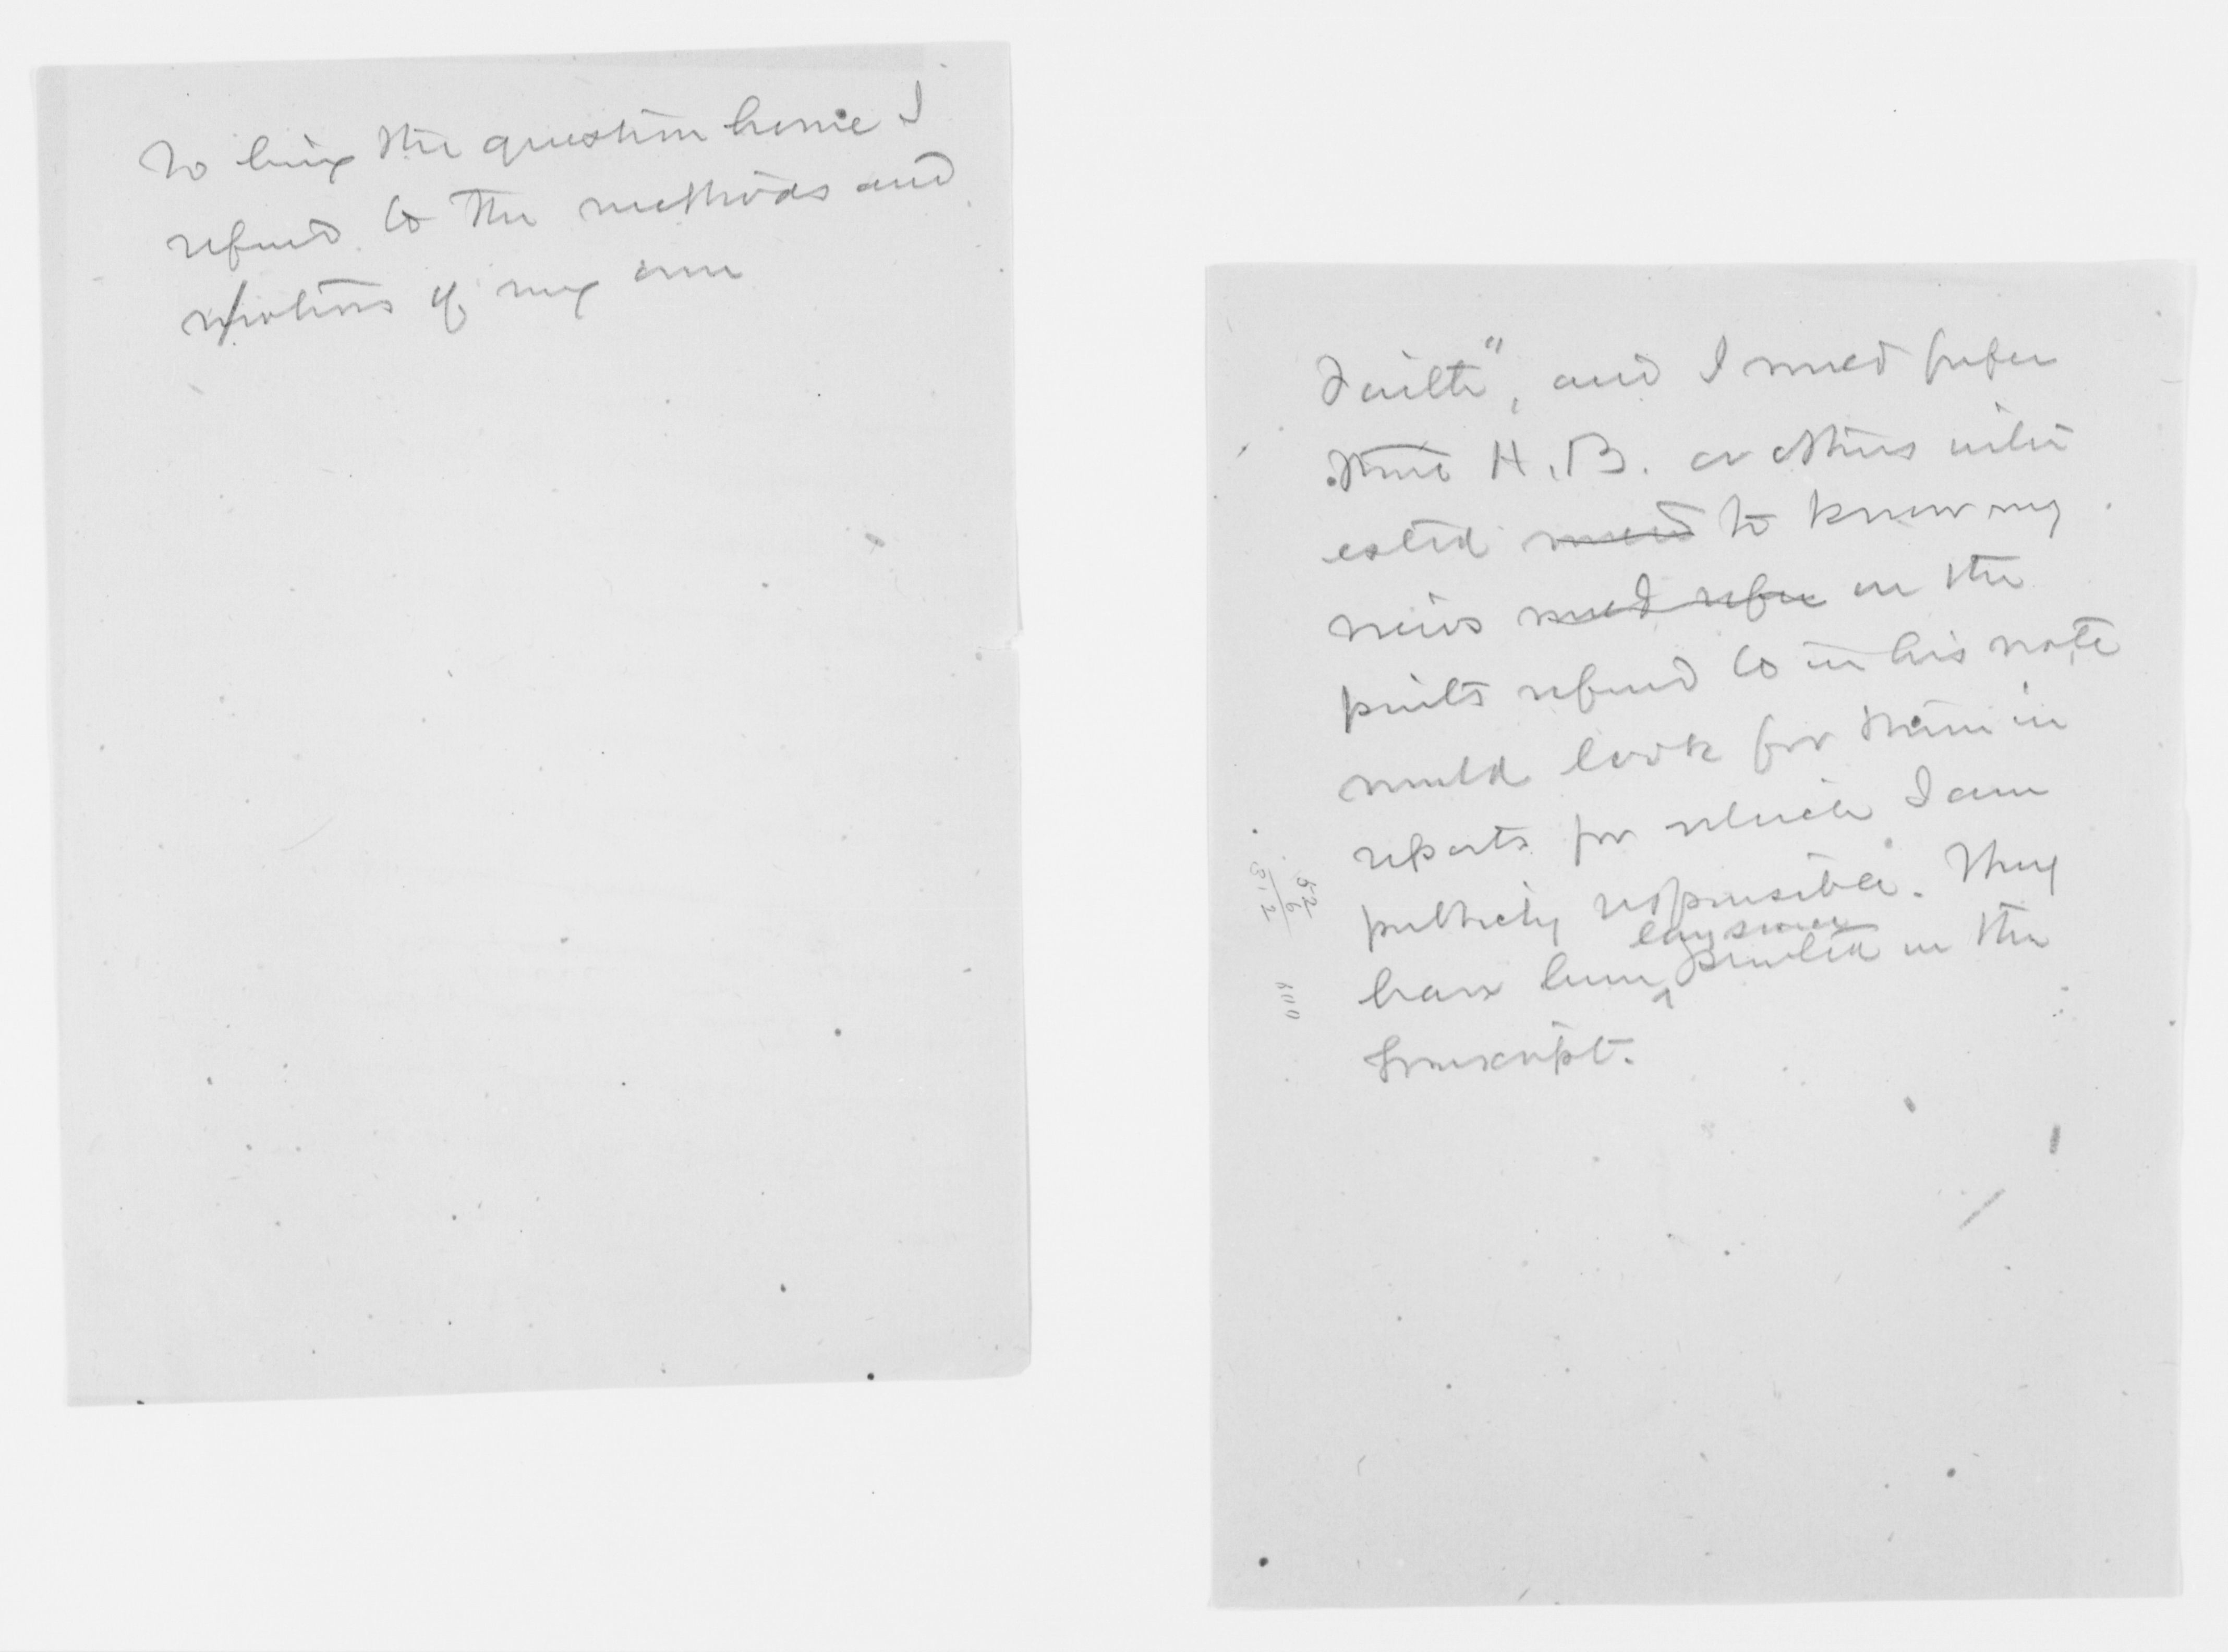 To bring the question home I
referred to the methods and
relations of my own
Faith", and I would prefer
that H.B. or others inter
ested to know my
views on the
points referred to in his note
would look for them in
reports for which I am
publicly responsible. They
have been long since printed in the
Transcript.
52
6
312
600